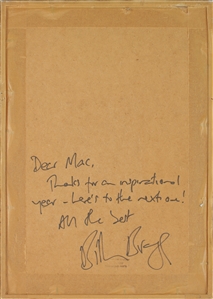 Dear Mac,
Thanks for an inspirational
year - here's to the next one!
All the best
Billy Bragg